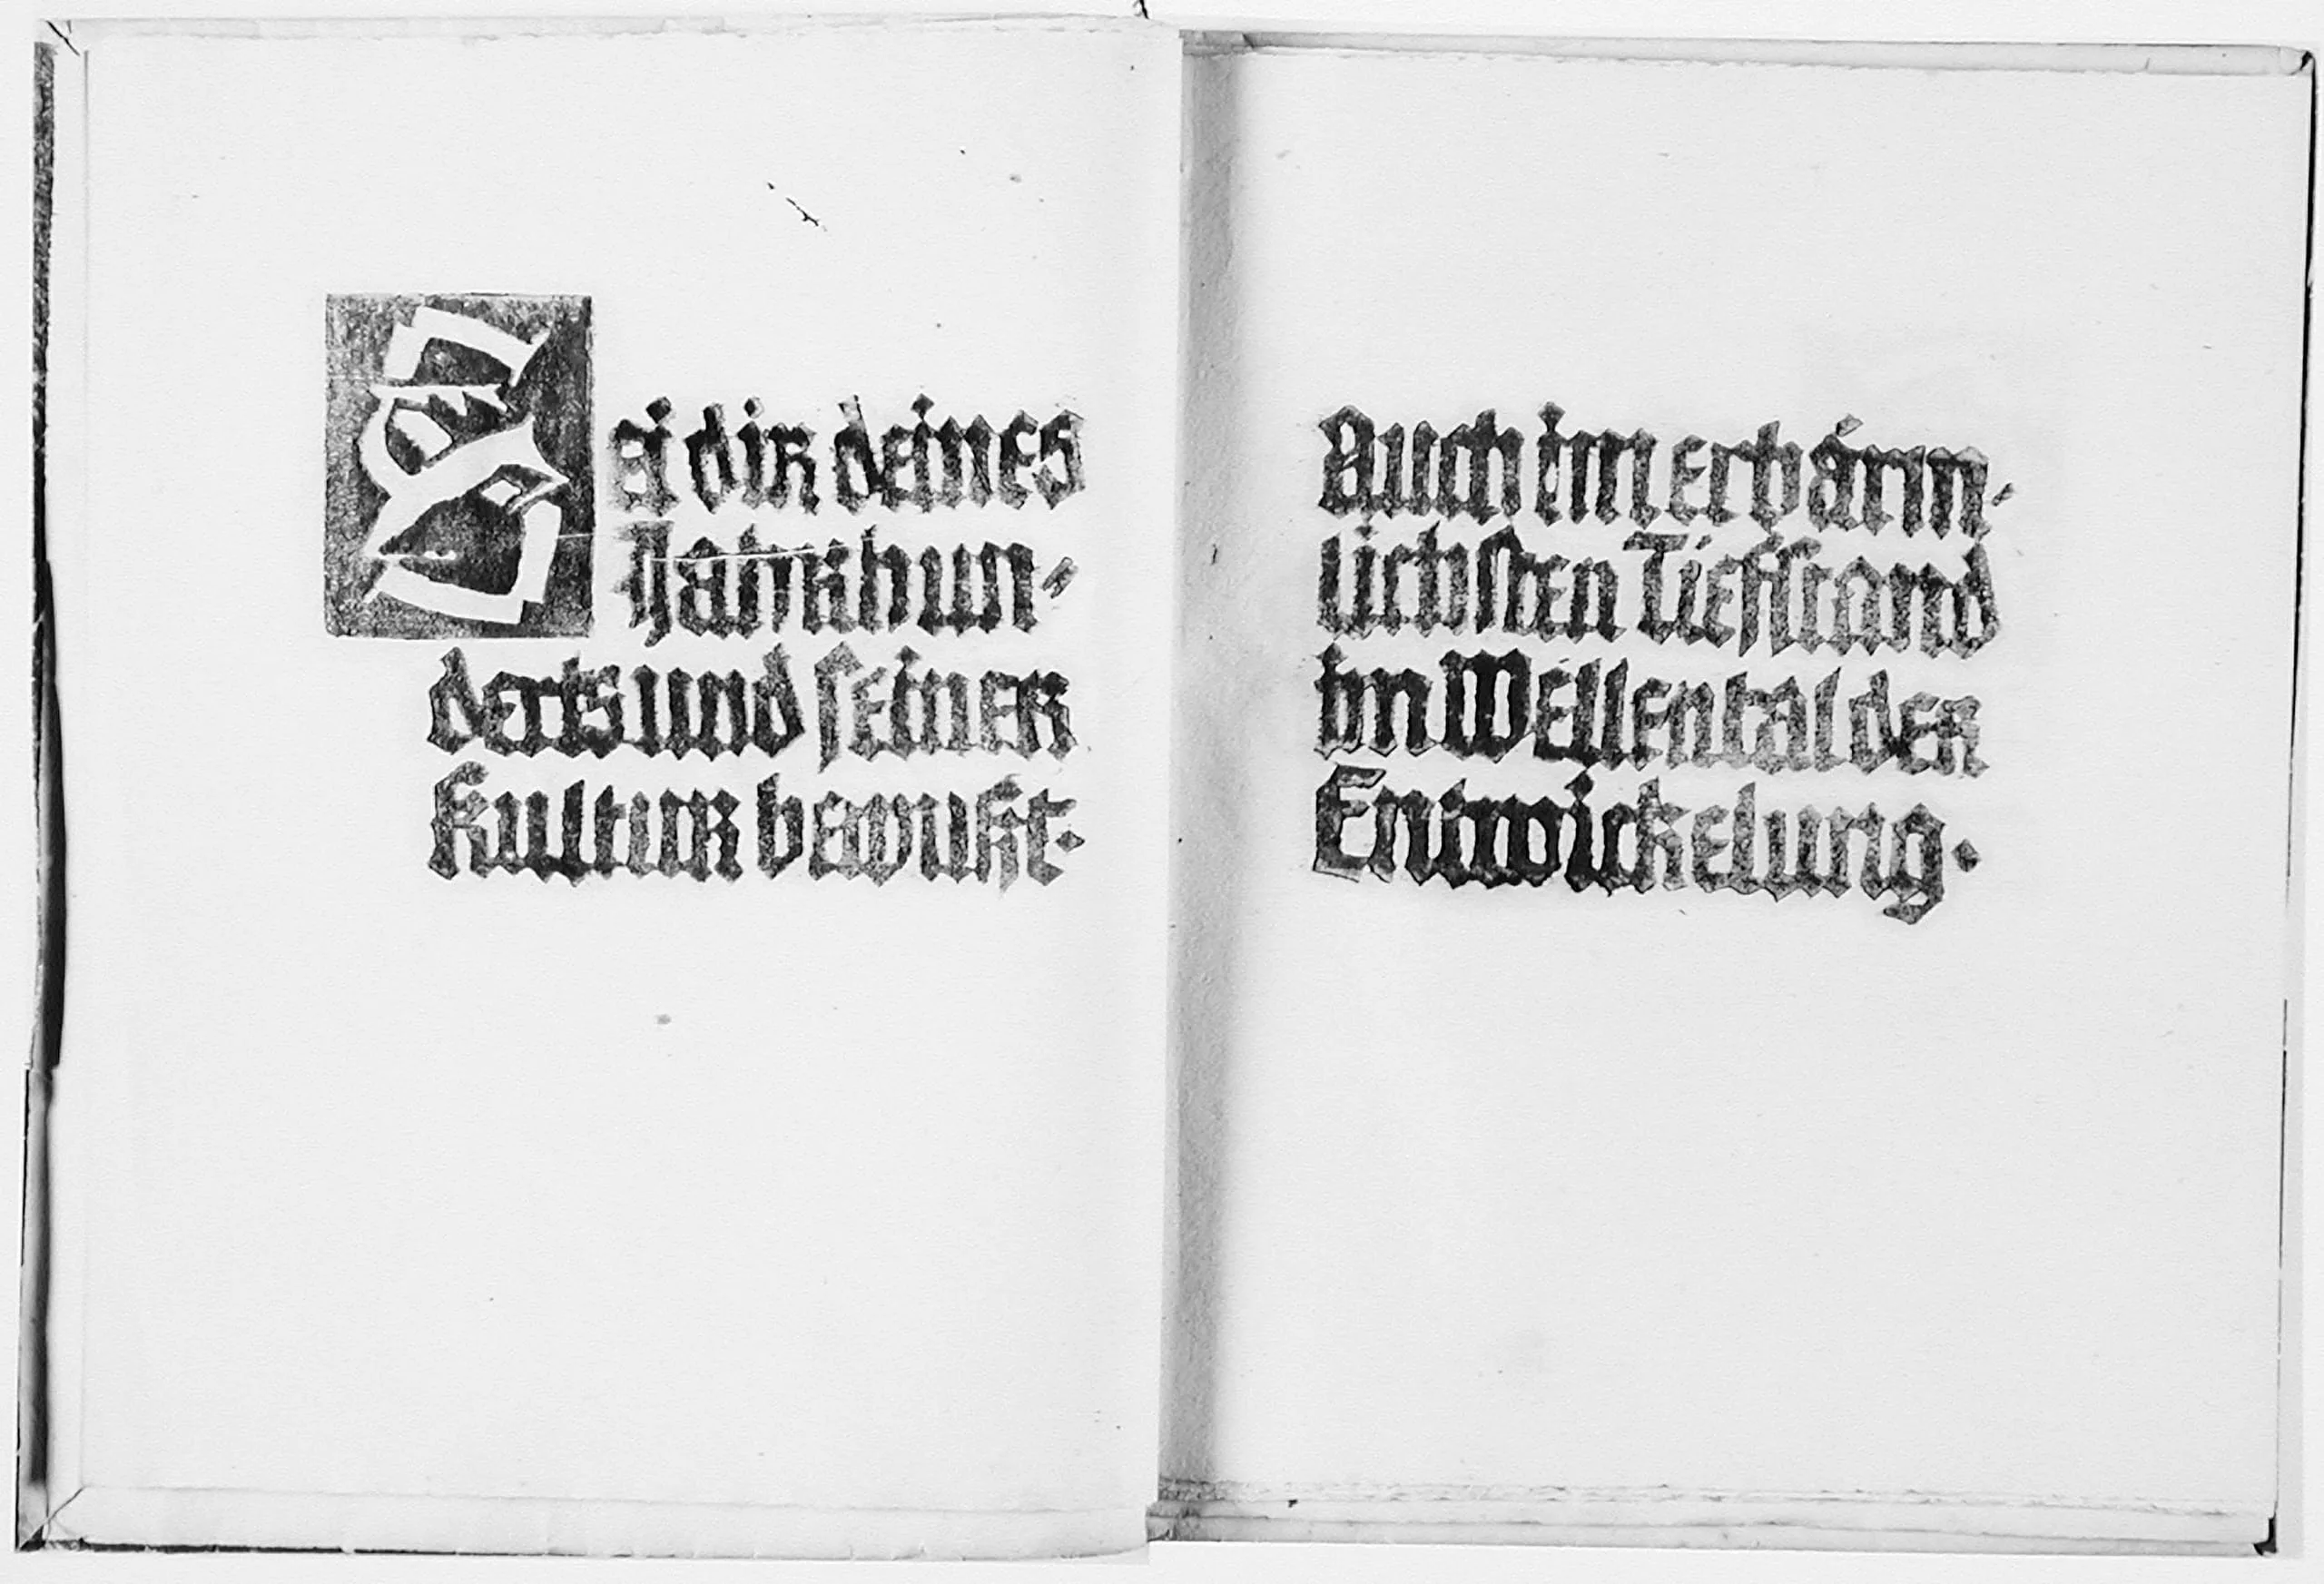 Sei dir deines
Jahrhun-
derts und seiner
Kultur bewußt.
Auch im erbärm-
lichsten Tiefstand
im Wellental der
Entwickelung.